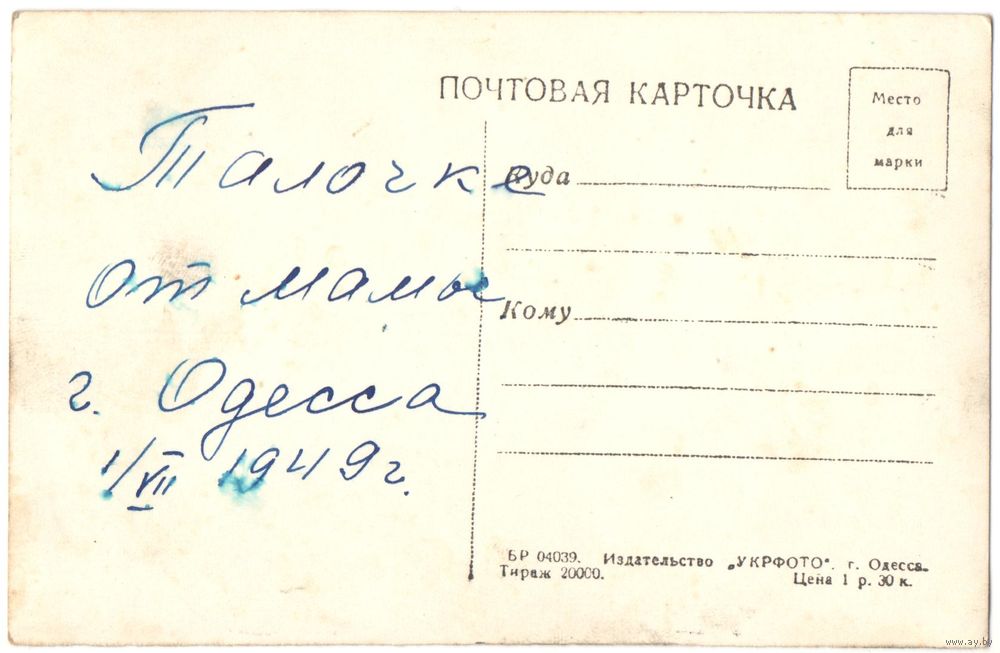 ПОЧТОВАЯ КАРТОЧКА
Место
для
марки
Талочке
от мамы
г. Одесса
1/VII 1949 г.
Куда
Кому
БР 04039. Издательство „УКРФОТО". г. Одесса.
Тираж 20000. Цена 1 р. 30 к.
www.ay.by